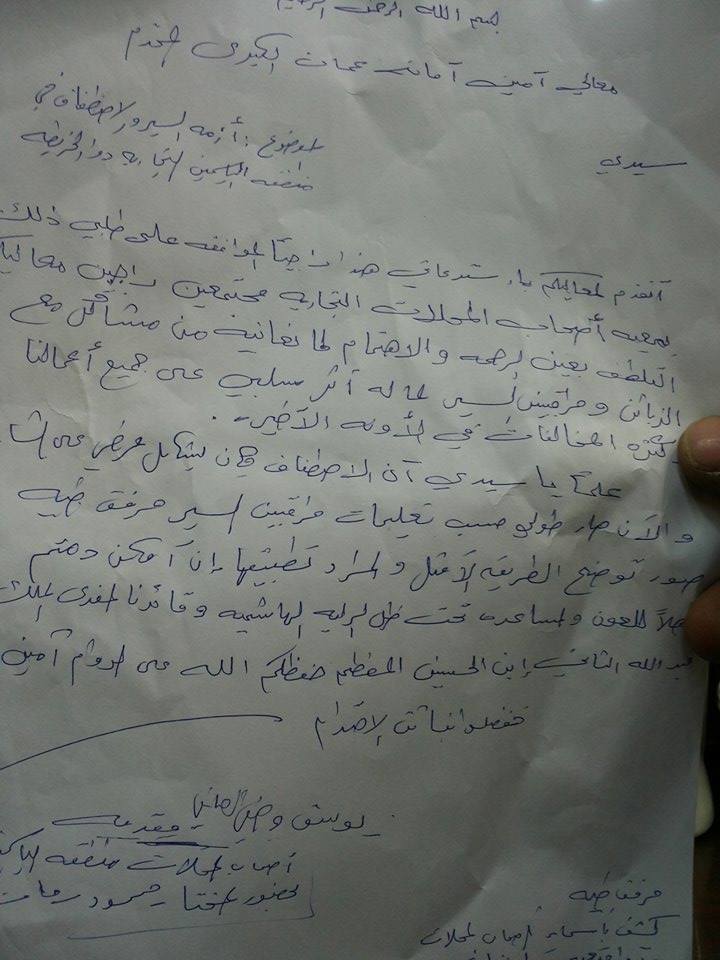 بسم الله الرحمن الرحيم
معالي آمين أمانة عمان الكبرى المحترم
الموضوع: أزمه السير والاصطفاف في
منطقه الياسمين التجاريه دوار الخريطه
سيدي
أتقدم لمعاليكم باستدعائي هذا راجياً الموافقه على طلبي ذلك
بمعيه أصحاب المحلات التجاريه مجتمعين راجين معاليكم
التلطف بعين الرحمه والاهتمام لما نعانيه من مشاكل مع
الزبائن ومراقبين السير لما له أثر سلبي على جميع أعمالنا
وكثره المخالفات في الأونه الأخير
علماً يا سيدي آن الاصطفاف كان بشكل عرضي على
والآن صار طولي حسب تعليمات مراقبين السير مرفق طيه
صور توضح الطريقه الأمثل والمراد تطبيقها إن آمكن دمتم
للعون والمساعده تحت ظل الرايه الهاشميه وقائدنا المفدى الملك
عبد الله الثاني إبن الحسين المعظم حفظكم الله على الدوام آمين
تفضلوا الإحترام
مقدمه
أصحاب محلات منطقه
بحضور المختار محمود
مرفق طيه
كشف بأسماء أصحاب المحلات